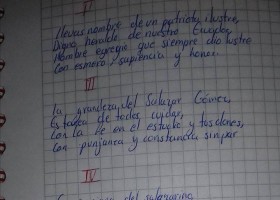 II
Llevas nombre de un patriota ilustre,
Digno heraldo de nuestro Ecuador
Hombre egregio que siempre dio lustre
Con esmero, sapiencia y honor.
III
La grandeza del Salazar Gómez,
Es tarea de todos cuidar,
Con la fe en el estudio y tus dones,
Con pujanza y constancia sin par
IV
del submarino